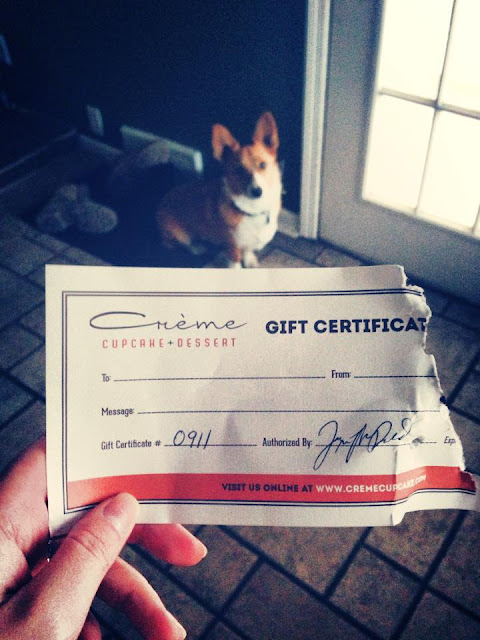 Crème
CUPCAKE + DESSERT
GIFT CERTIFICAT
To: From:
Message:
Gift Certificate # 0911 Authorized By: Exp.
VISIT US ONLINE AT WWW.CREMECUPCAKE.COM